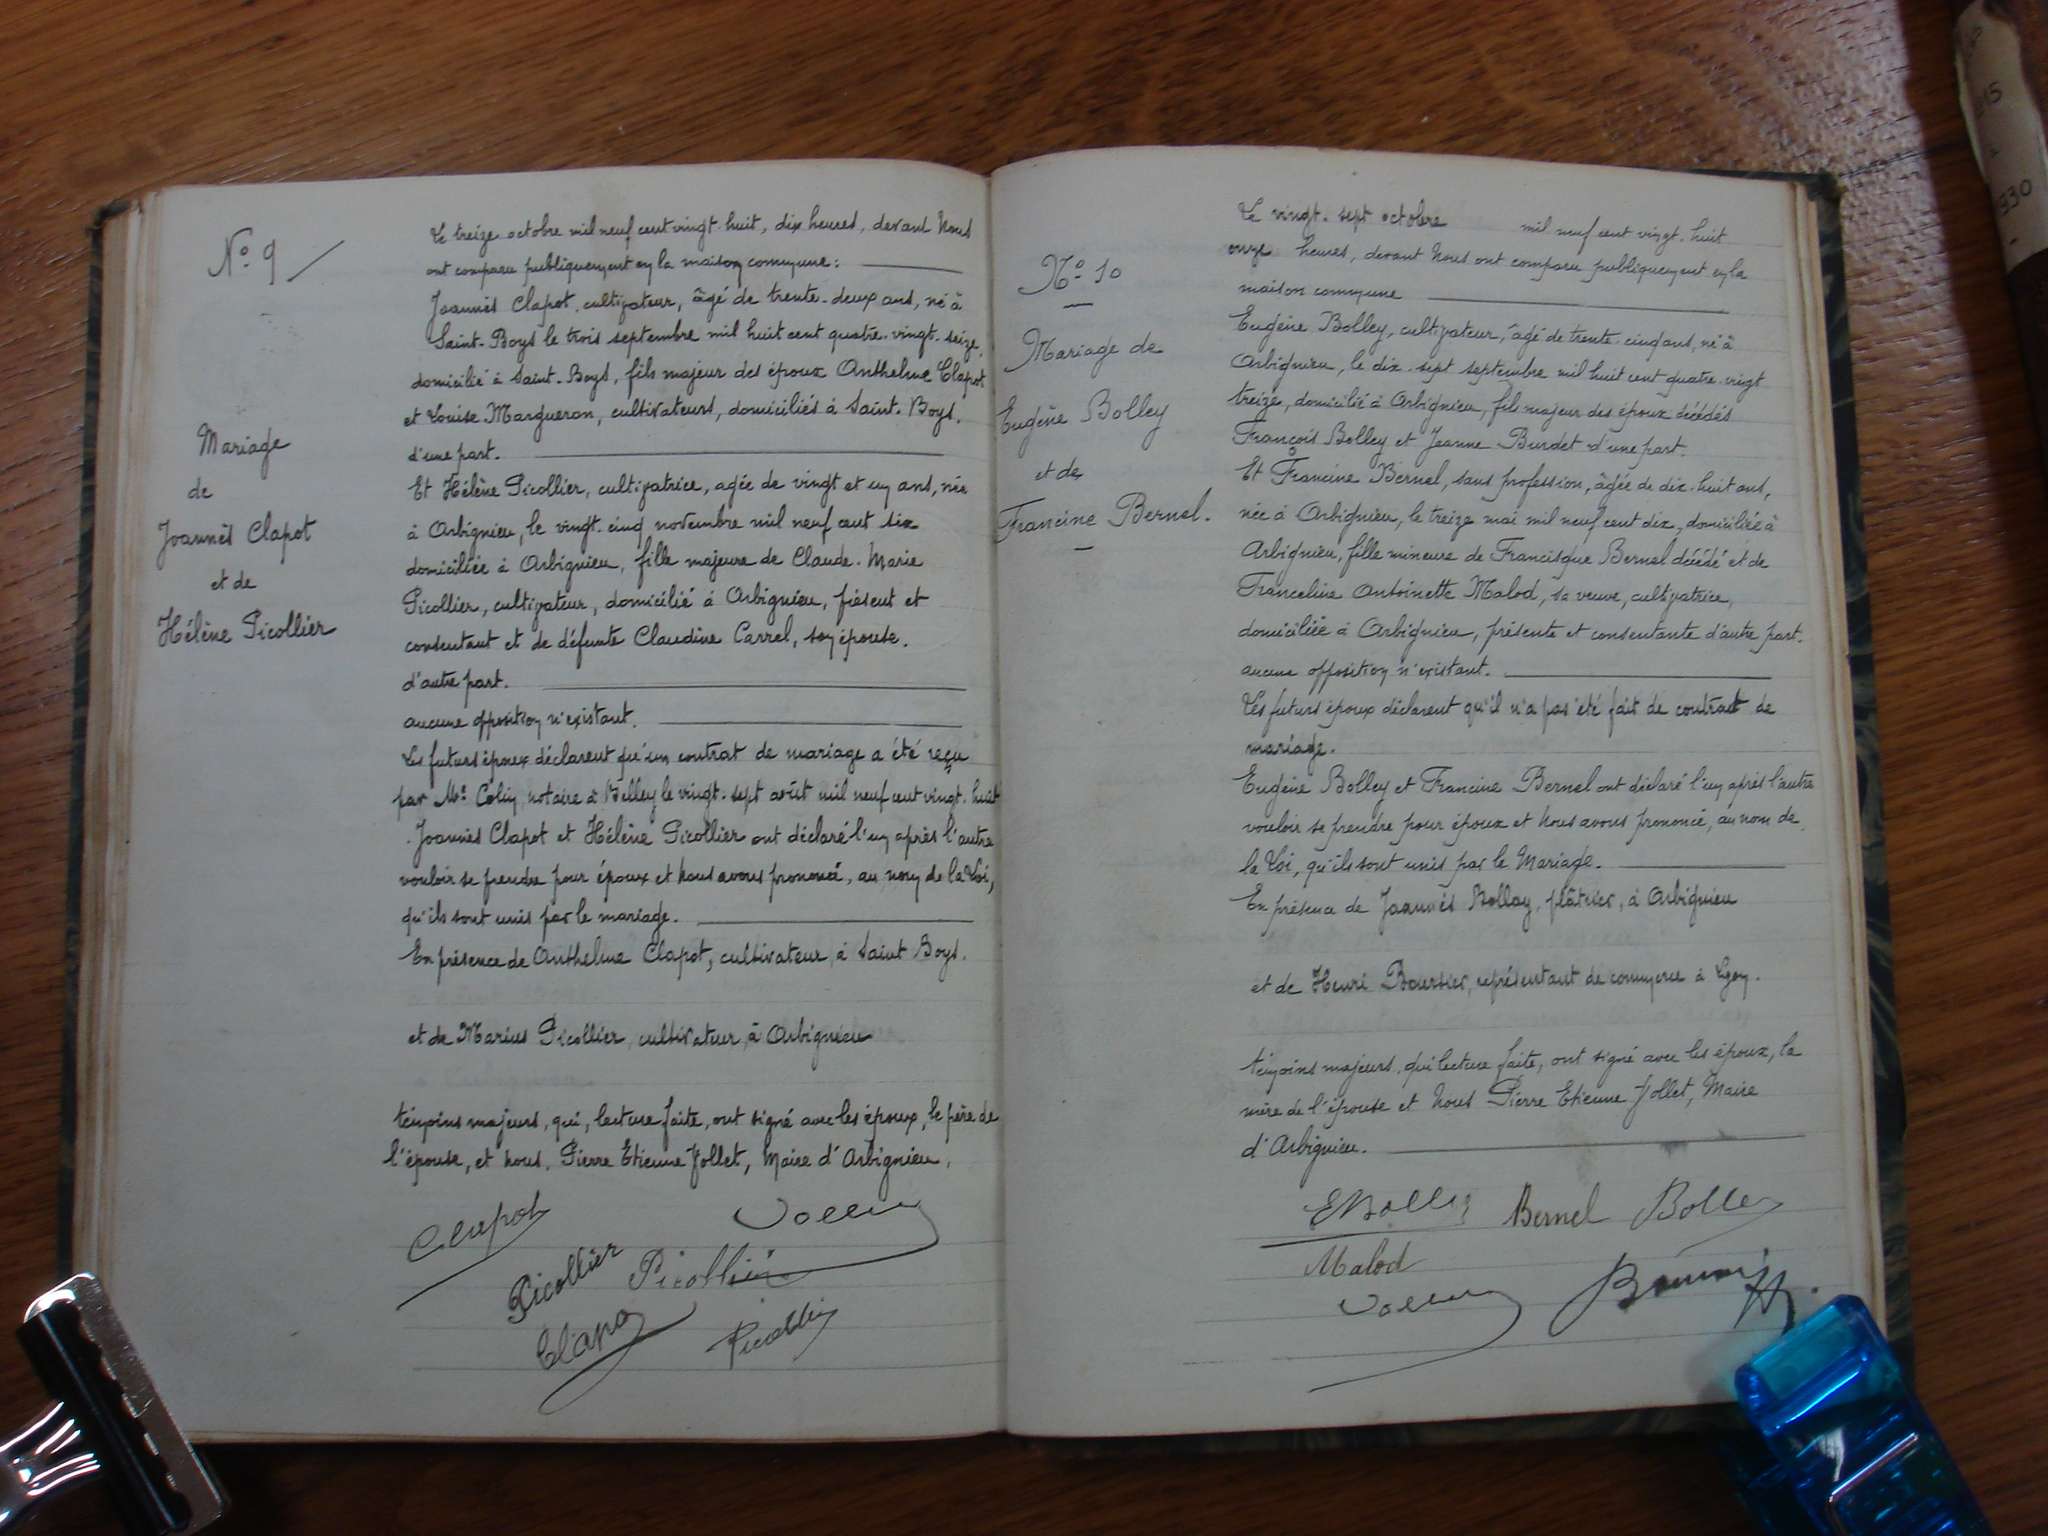 N° 9
Mariage
de
Joannès Clapot
et de
Hélène Picollier
Le treize octobre mil neuf cent vingt-huit, dix heures, devant Nous
ont comparu publiquement en la maison commune :
Joannès Clapot, cultivateur, âgé de trente-deux ans, né à
Saint-Boys le trois septembre mil huit cent quatre-vingt-seize,
domicilié à Saint-Boys, fils majeur des époux Anthelme Clapot
et Louise Margueron, cultivateurs, domiciliés à Saint-Boys.
d'une part.
Et Hélène Picollier, cultivatrice, agée de vingt et un ans, née
à Arbignieu, le vingt-cinq novembre mil neuf cent six
domiciliée à Arbignieu, fille majeure de Claude-Marie
Picollier, cultivateur, domicilié à Arbignieu, présent et
consentant et de défunte Claudine Carrel, son épouse.
d'autre part.
aucune opposition n'existant.
Les futurs époux déclarent qu'un contrat de mariage a été reçu
par Me Colin, notaire à Belley le vingt-sept août mil neuf cent vingt-huit
Joannès Clapot et Hélène Picollier ont déclaré l'un après l'autre
vouloir se prendre pour époux et Nous avons prononcé, au nom de la Loi,
qu'ils sont unis par le mariage.
En présence de Anthelme Clapot, cultivateur, à Saint Boys.
et de Marius Picollier, cultivateur, à Arbignieu
témoins majeurs, qui, lecture faite, ont signé avec les époux, le père de
l'épouse, et Nous, Pierre Etienne Jollet, Maire d'Arbignieu.
Clapot
Picollier Picollier
Clapot Picollier
N° 10
Mariage de
Eugène Bolley
et de
Francine Bernel.
Le vingt-sept octobre mil neuf cent vingt-huit
onze heures, devant Nous ont comparu publiquement en la
maison commune
Eugène Bolley, cultivateur, âgé de trente-cinq ans, né à
Arbignieu, le dix-sept septembre mil huit cent quatre-vingt
treize, domicilié à Arbignieu, fils majeur des époux décédés
François Bolley et Jeanne Burdet d'une part.
Et Francine Bernel, sans profession, âgée de dix-huit ans,
née à Arbignieu, le treize mai mil neuf cent dix, domiciliée à
Arbignieu, fille mineure de Francisque Bernel décédé et de
Franceline Antoinette Malod, sa veuve, cultivatrice,
domiciliée à Arbignieu, présente et consentante d'autre part.
aucune opposition n'existant.
Les futurs époux déclarent qu'il n'a pas été fait de contrat de
mariage.
Eugène Bolley et Francine Bernel ont déclaré l'un après l'autre
vouloir se prendre pour époux et Nous avons prononcé, au nom de
la Loi, qu'ils sont unis par le Mariage.
En présence de Joannès Bolley, plâtrier, à Arbignieu
et de Henri Boursier, représentant de commerce à Lyon.
témoins majeurs, qui lecture faite, ont signé avec les époux, la
mère de l'épouse et Nous Pierre Etienne Jollet, Maire
d'Arbignieu.
EBolley Bernel Bolley
Malod